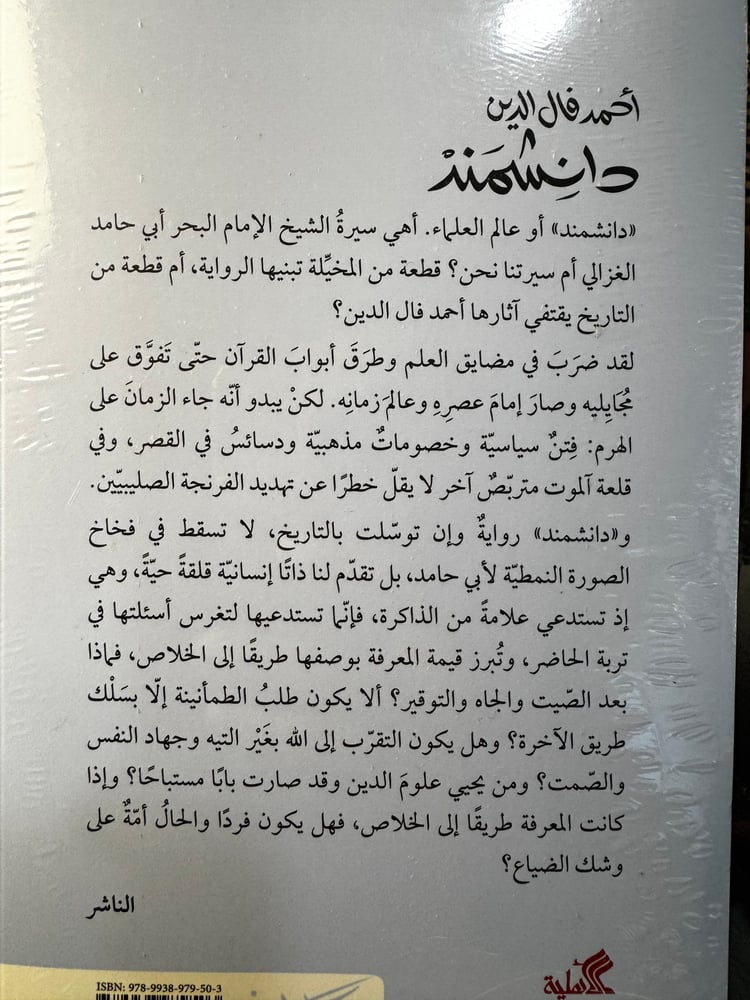 أحمد فال الدين
دانِشمَندْ
«دانشمند» أو عالم العلماء. أهي سيرةُ الشيخ الإمام البحر أبي حامد
الغزالي أم سيرتنا نحن؟ قطعة من المخيِّلة تبنيها الرواية، أم قطعة من
التاريخ يقتفي آثارها أحمد فال الدين؟
لقد ضرَبَ في مضايق العلم وطرَقَ أبوابَ القرآن حتّى تَفوَّق على
مُجَايِليه وصارَ إمامَ عصرِهِ وعالمَ زمانِه. لكنْ يبدو أنّه جاء الزمانَ على
الهرم: فِتنٌ سياسيّة وخصوماتٌ مذهبيّة ودسائسُ في القصر، وفي
قلعة آلموت متربّصٌ آخر لا يقلّ خطرًا عن تهديد الفرنجة الصليبيّين.
و«دانشمند» روايةٌ وإن توسّلت بالتاريخ، لا تسقط في فخاخ
الصورة النمطيّة لأبي حامد، بل تقدّم لنا ذاتًا إنسانيّة قلقةً حيّةً، وهي
إذ تستدعي علامةً من الذاكرة، فإنّما تستدعيها لتغرس أسئلتها في
تربة الحاضر، وتُبرز قيمة المعرفة بوصفها طريقًا إلى الخلاص، فماذا
بعد الصّيت والجاه والتوقير؟ ألا يكون طلبُ الطمأنينة إلّا بسَلْك
طريق الآخرة؟ وهل يكون التقرّب إلى الله بغَيْر التيه وجهاد النفس
والصّمت؟ ومن يحيي علومَ الدين وقد صارت بابًا مستباحًا؟ وإذا
كانت المعرفة طريقًا إلى الخلاص، فهل يكون فردًا والحالُ أمّةٌ على
وشك الضياع؟
الناشر
ISBN: 978-9938-979-50-3